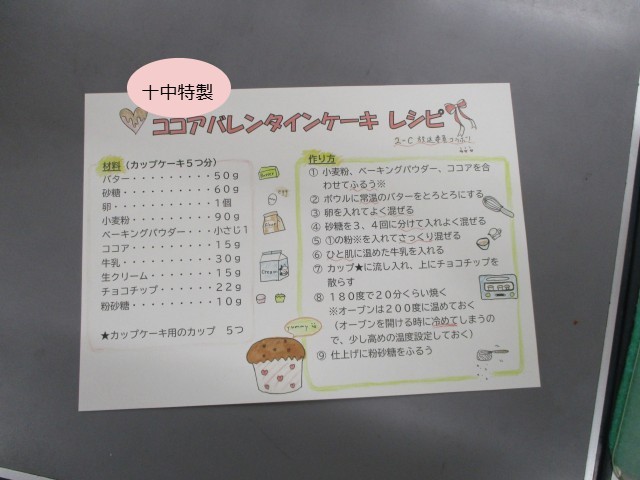 十中特製
ココアバレンタインケーキ レシピ
2-C
材料（カップケーキ５つ分）
バター・・・・・・・・・・５０ｇ
砂糖・・・・・・・・・・・６０ｇ
卵・・・・・・・・・・・・１個
小麦粉・・・・・・・・・・９０ｇ
ベーキングパウダー・・・・小さじ１
ココア・・・・・・・・・・１５ｇ
牛乳・・・・・・・・・・・３０ｇ
生クリーム・・・・・・・・１５ｇ
チョコチップ・・・・・・・２２ｇ
粉砂糖・・・・・・・・・・１０ｇ
★カップケーキ用のカップ　５つ
作り方
① 小麦粉、ベーキングパウダー、ココアを合
わせてふるう※
② ボウルに常温のバターをとろとろにする
③ 卵を入れてよく混ぜる
④ 砂糖を３、４回に分けて入れよく混ぜる
⑤ ①の粉※を入れてさっくり混ぜる
⑥ ひと肌に温めた牛乳を入れる
⑦ カップ★に流し入れ、上にチョコチップを
散らす
⑧ １８０度で２０分くらい焼く
※オーブンは２００度に温めておく
（オーブンを開ける時に冷めてしまうの
で、少し高めの温度設定しておく）
⑨ 仕上げに粉砂糖をふるう
yummy